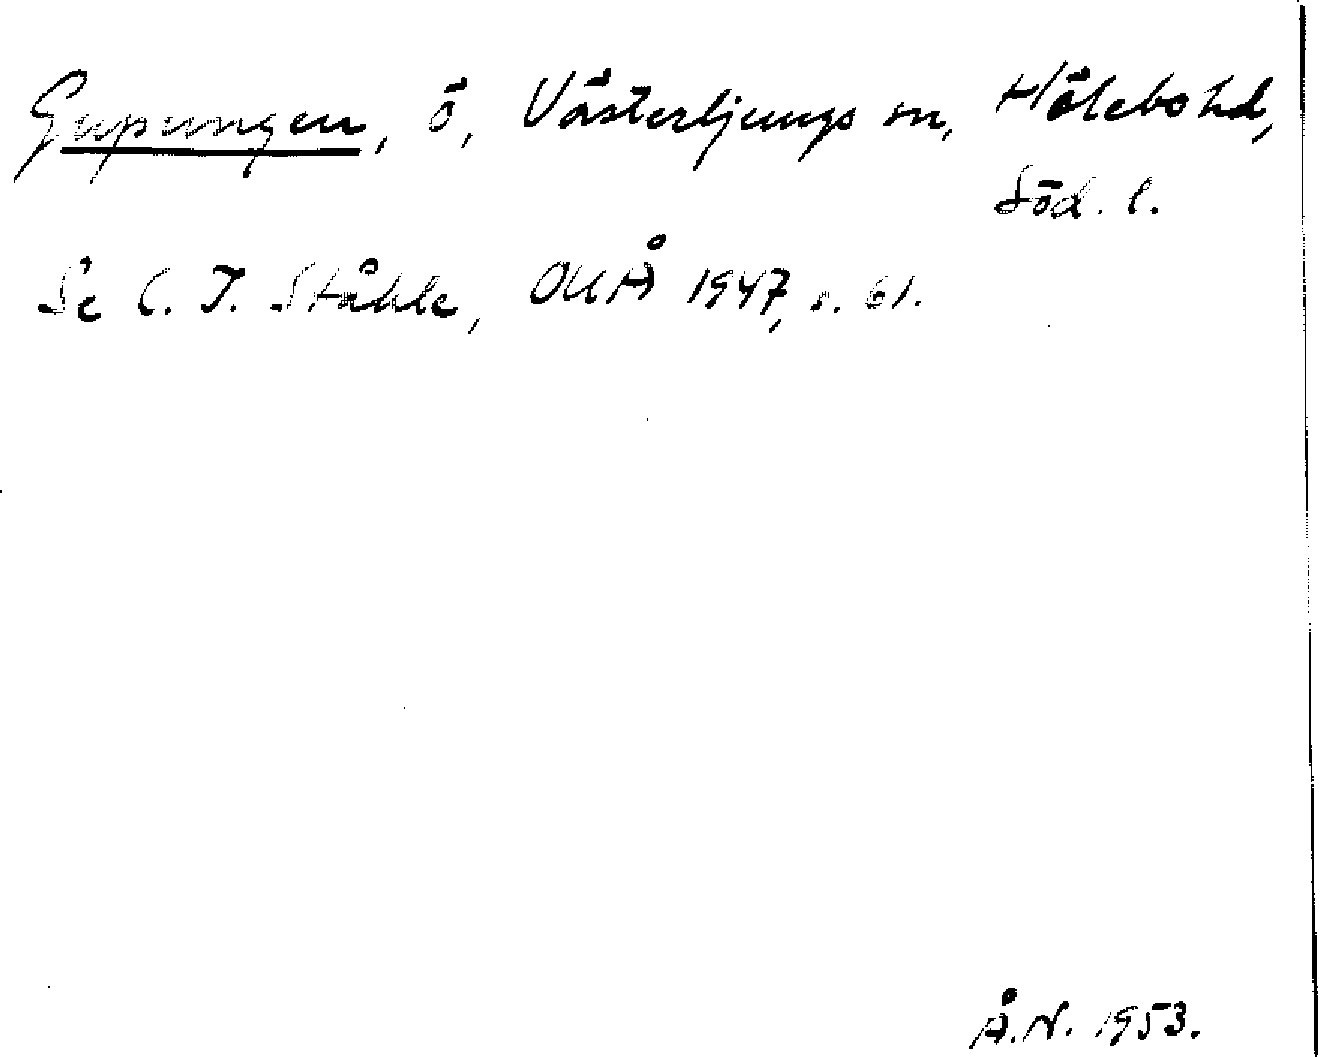 Gupungen, ö, Västerljungs sn, Hölebo hd,
Söd. l.
Se C. I. Ståhle, OUÅ 1947, s. 61.
Å.N. 1953.